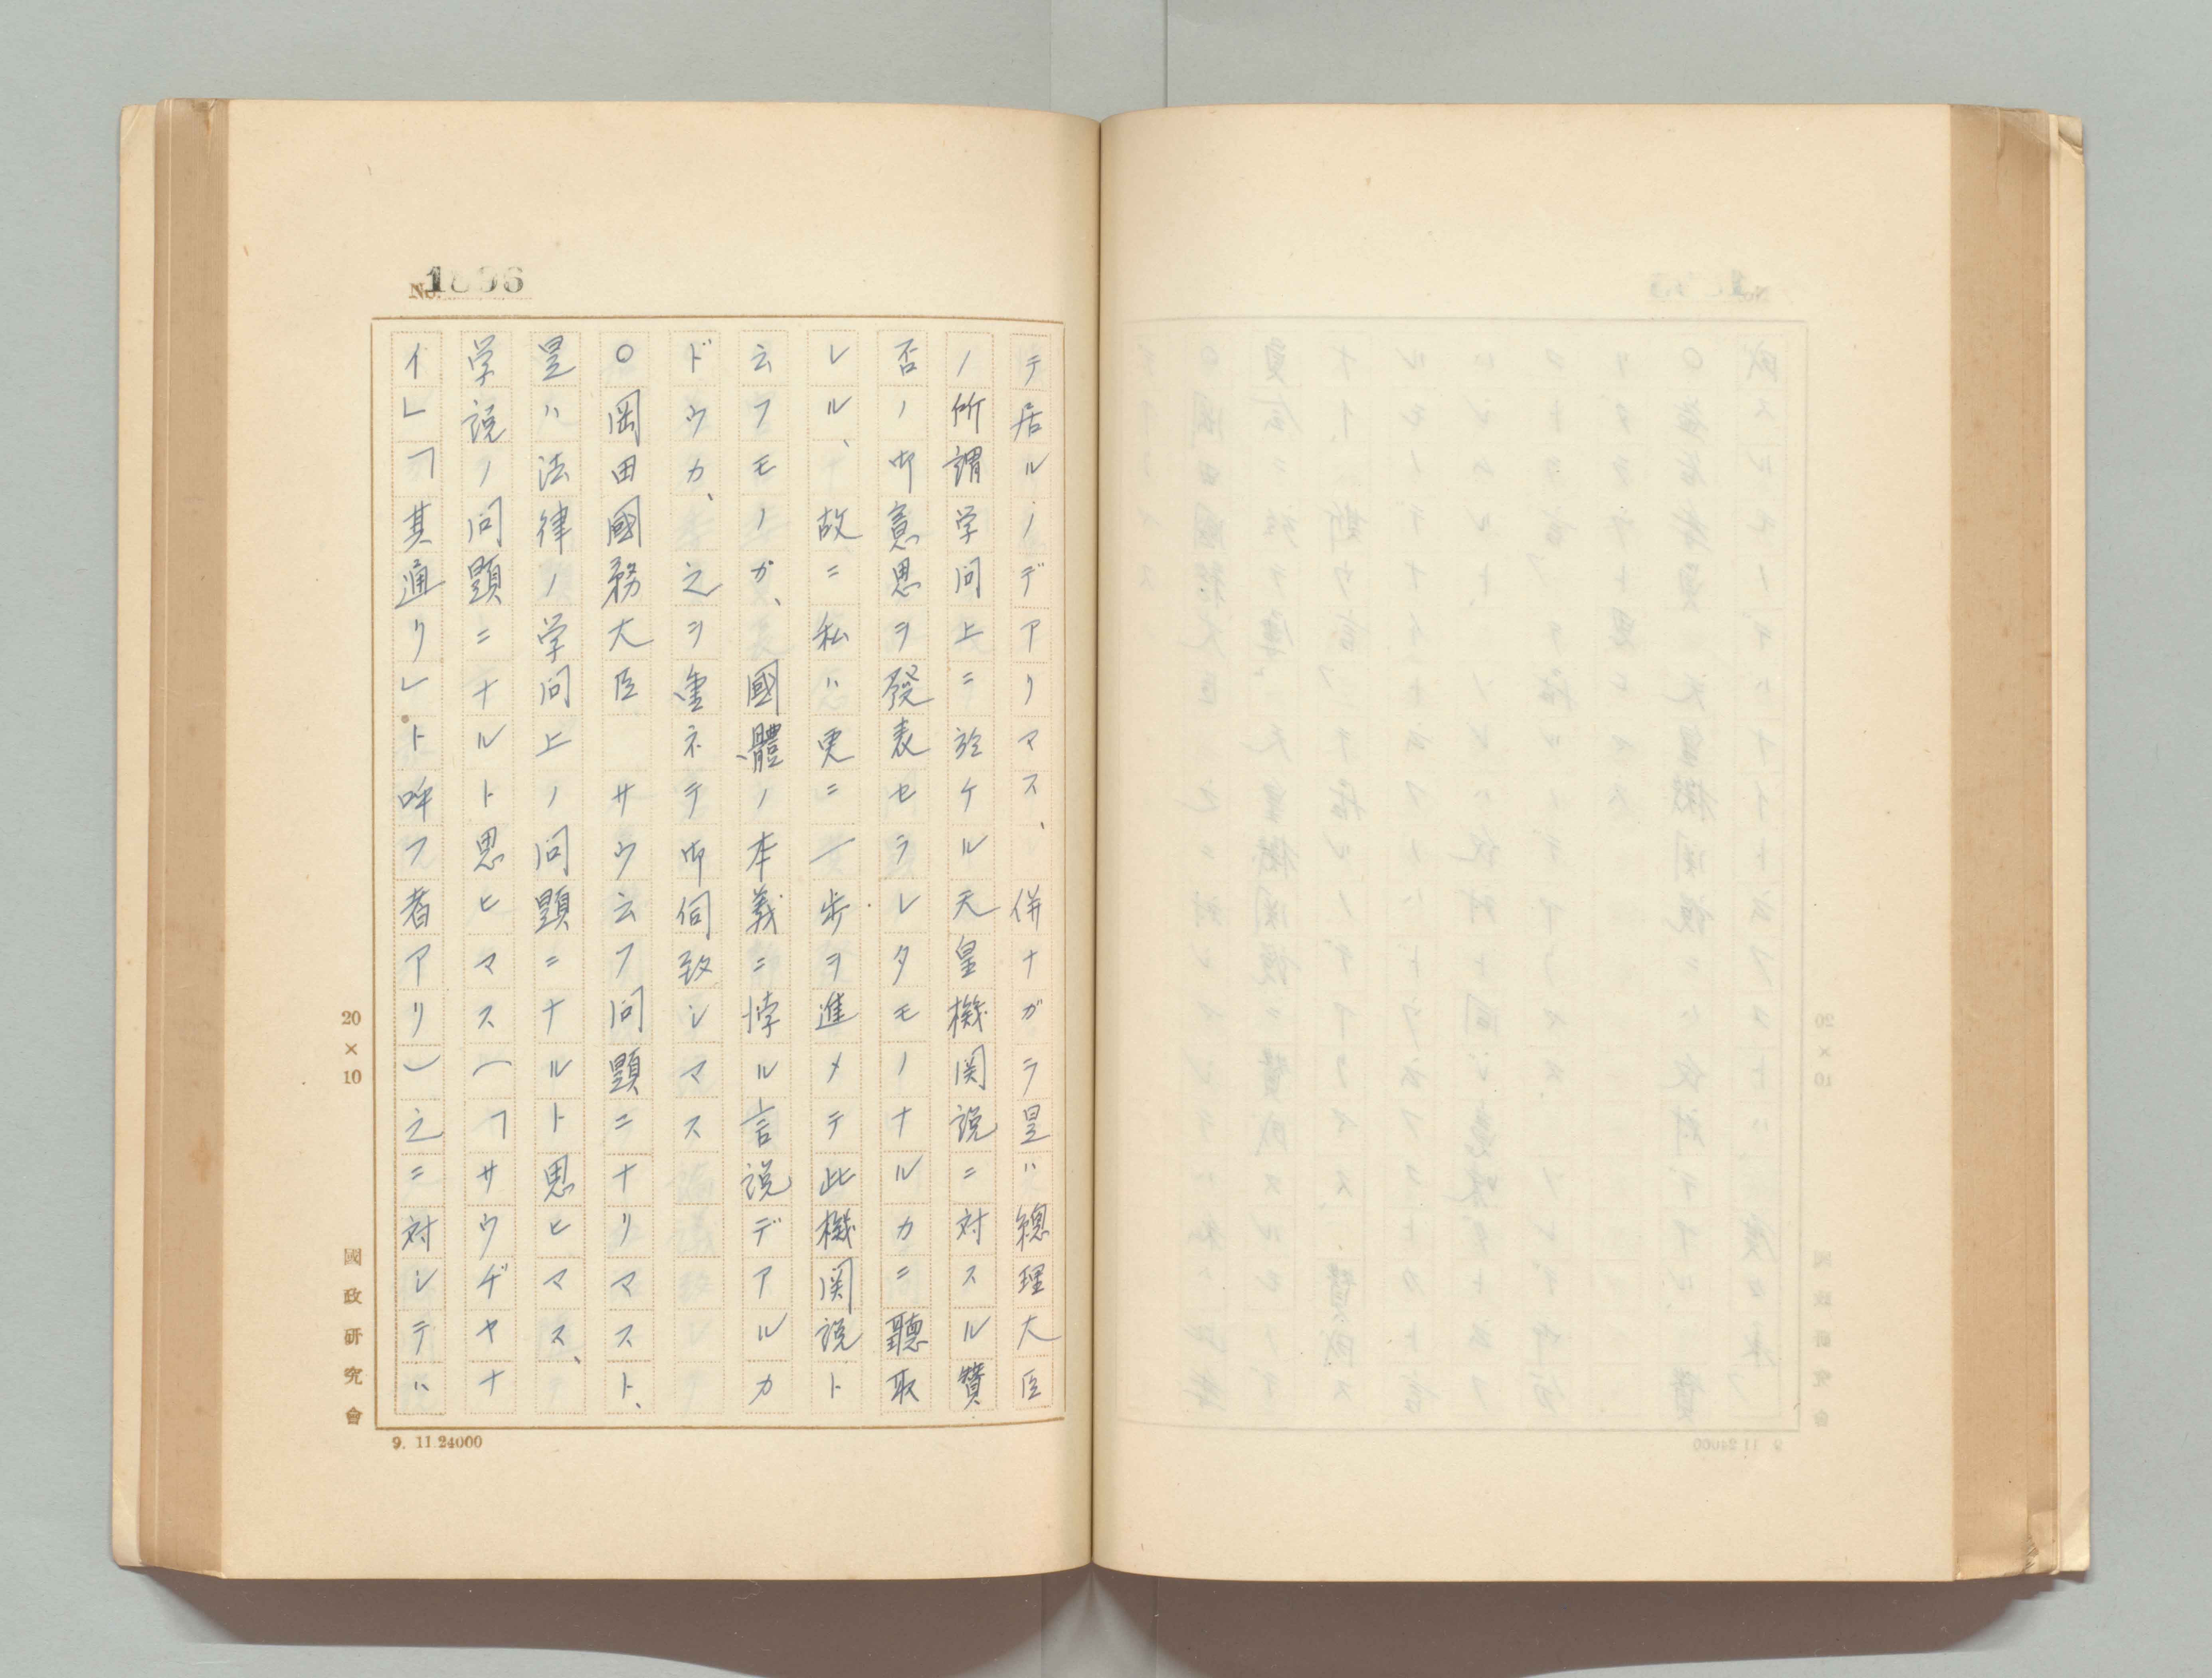 No. 1896
テ居ルノデアリマス、併ナガラ是ハ總理大臣
ノ所謂学问上ニ於ケル天皇機関説ニ対スル贊
否ノ御意思ヲ發表セラレタモノナルカニ聽取
レル、故ニ私ハ更ニ一歩ヲ進メテ此機関説ト
云フモノガ、國體ノ本義ニ悖ル言説デアルカ
ドウカ、之ヲ重ネテ御伺致シマス
○岡田國務大臣 サウ云フ问題ニナリマスト、
是ハ法律ノ学问上ノ问題ニナルト思ヒマス、
学説ノ问題ニナルト思ヒマス(「サウヂヤナ
イ」「其通リ」ト呼フ者アリ)之ニ対シテハ
20×10
國政研究會
9. 11.24000